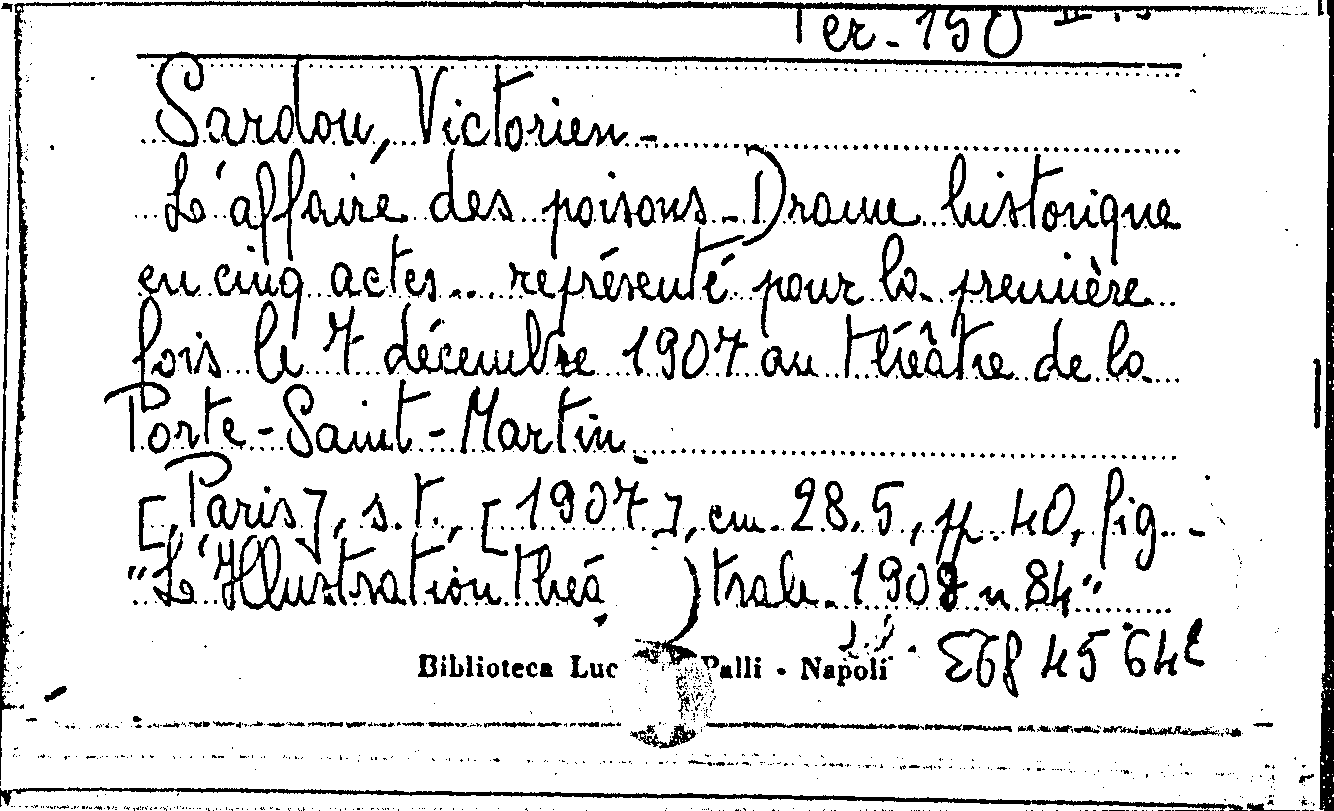 Per. 190
Sardou, Victorien -
L'affaire des poisons - Drame historique
en cinq actes... représenté pour la première
fois le 7 décembre 1907 au théâtre de la
Porte-Saint-Martin.
[Paris], s.t., [1907], cm. 28.5, pp. 40, fig. -
"L'Illustration theá ) trale. 1908 n 84"
Biblioteca Luc Palli - Napoli 45 64